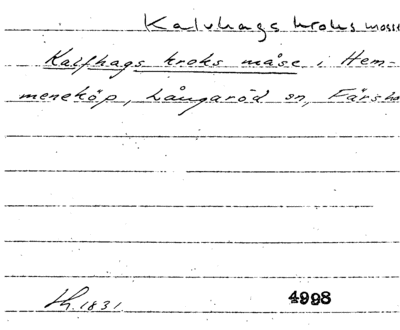 Kalvhags kroks mosse
Kalfhags kroks måse i Hem-
meneköp, Långaröd sn, Färs
1831. 4998